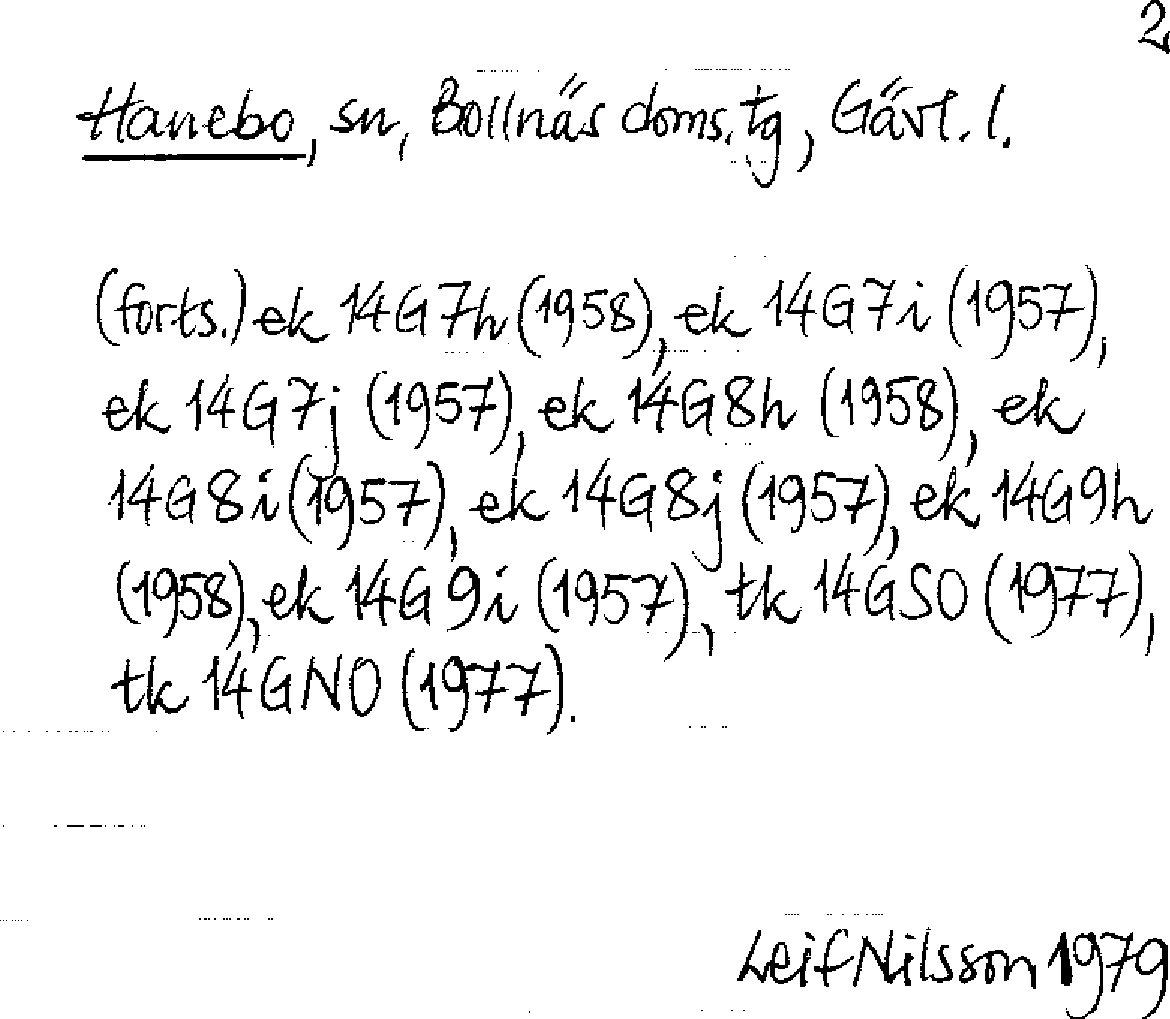 2
Hanebo, sn, Bollnäs doms.tg, Gävl. l.
(forts.) ek 14G7h (1958), ek 14G7i (1957),
ek 14G7j (1957), ek 14G8h (1958), ek
14G8i (1957), ek 14G8j (1957), ek 14G9h
(1958), ek 14G9i (1957), tk 14GSO (1977),
tk 14GNO (1977).
Leif Nilsson 1979